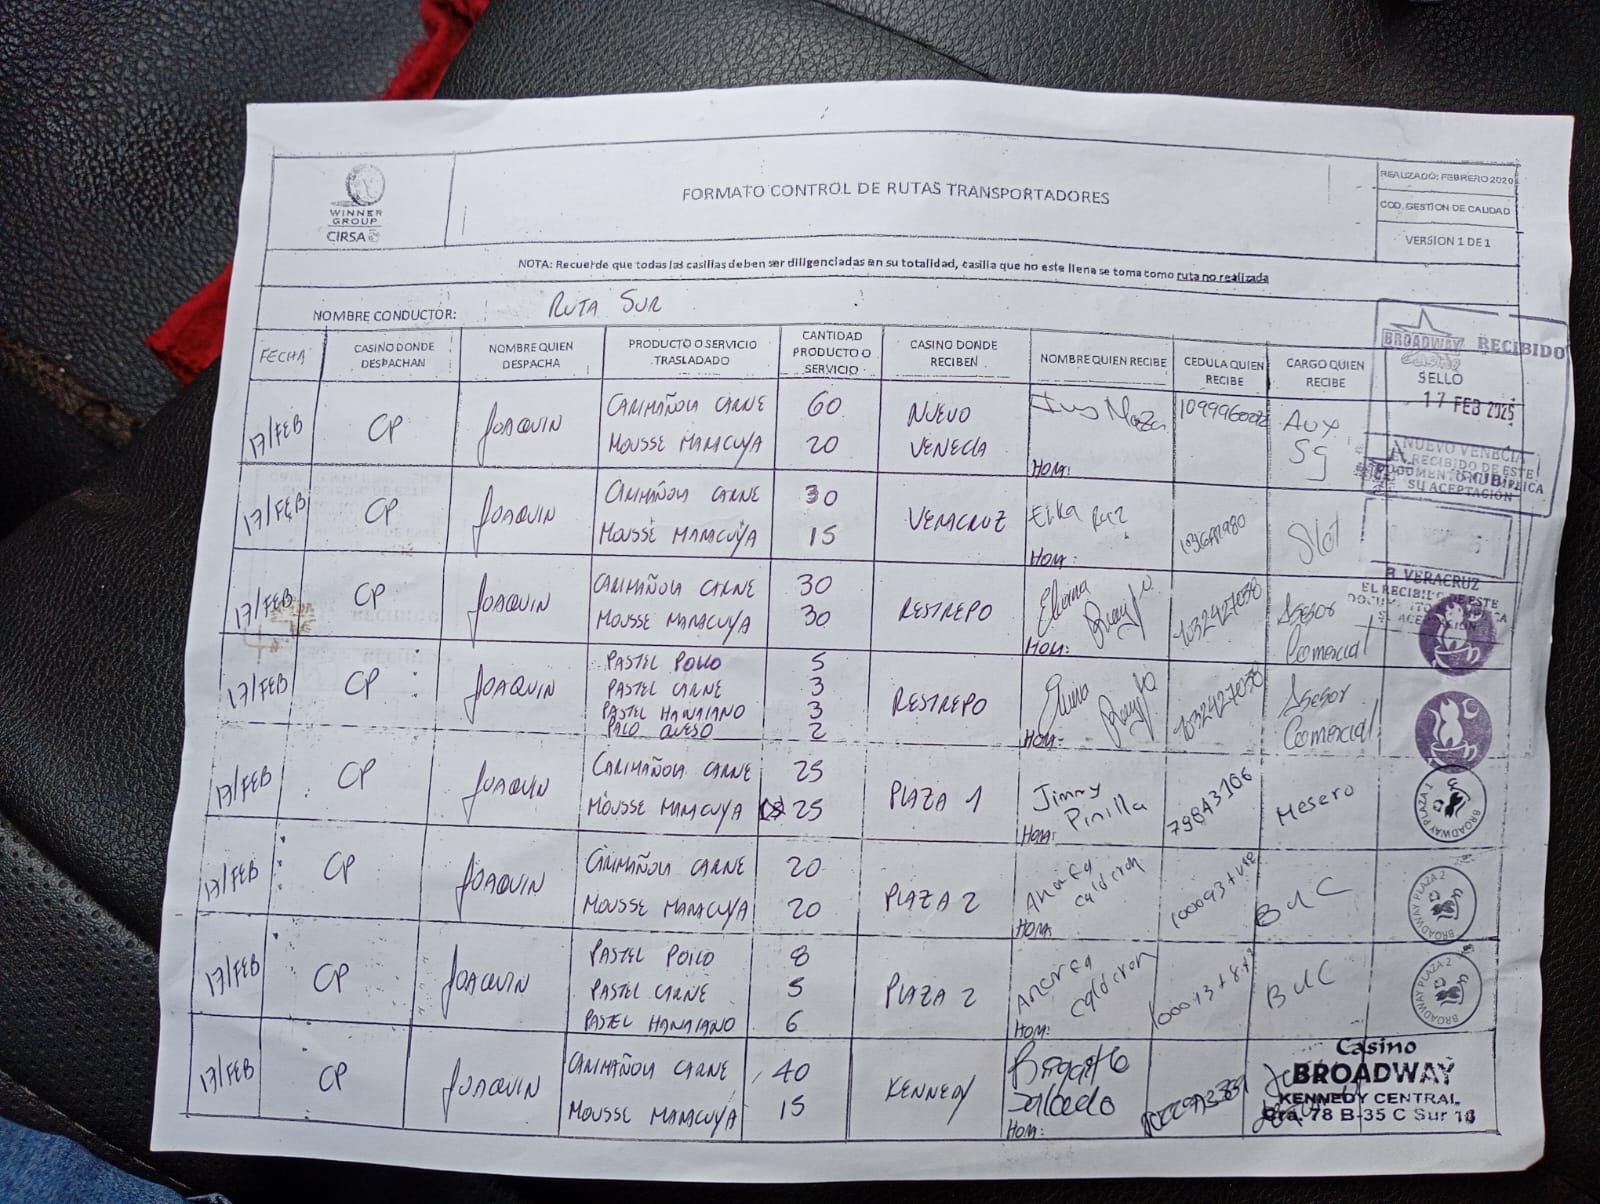 WINNER GROUP CIRSA
FORMATO CONTROL DE RUTAS TRANSPORTADORES
REALIZADO: FEBRERO 2020
COD. GESTION DE CALIDAD
VERSION 1 DE 1
NOTA: Recuerde que todas las casillas deben ser diligenciadas en su totalidad, casilla que no este llena se toma como ruta no realizada
NOMBRE CONDUCTOR: RUTA SUR
FECHA CASINO DONDE DESPACHAN NOMBRE QUIEN DESPACHA PRODUCTO O SERVICIO TRASLADADO CANTIDAD PRODUCTO O SERVICIO CASINO DONDE RECIBEN NOMBRE QUIEN RECIBE CEDULA QUIEN RECIBE CARGO QUIEN RECIBE SELLO
BROADWAY Casino RECIBIDO
17 FEB 2025
17/FEB CP JOAQUIN CARIMAÑOLA CARNE 60 NUEVO VENECIA AUX SG
MOUSSE MARACUYA 20
HORA:
NUEVO VENECIA
EL RECIBIDO DE ESTE
DOCUMENTO NO IMPLICA
SU ACEPTACIÓN
17/FEB CP JOAQUIN CARIMAÑOLA CARNE 30 VERACRUZ Slot
MOUSSE MARACUYA 15
HORA:
B. VERACRUZ
EL RECIBIDO DE ESTE
17/FEB CP JOAQUIN CARIMAÑOLA CARNE 30 RESTREPO 1032427038 Asesor Comercial
MOUSSE MARACUYA 30
HORA:
17/FEB CP JOAQUIN PASTEL POLLO 5 RESTREPO 1032427038 Asesor Comercial
PASTEL CARNE 3
PASTEL HAWAIANO 3
PALO QUESO 2
HORA:
17/FEB CP JOAQUIN CARIMAÑOLA CARNE 25 PLAZA 1 Jimmy Pinilla 79843106 Mesero
MOUSSE MARACUYA 25
HORA:
BROADWAY PLAZA 1
17/FEB CP JOAQUIN CARIMAÑOLA CARNE 20 PLAZA 2 Andrea Calderon BUC
MOUSSE MARACUYA 20
HORA
BROADWAY PLAZA 2
17/FEB CP JOAQUIN PASTEL POLLO 8 PLAZA 2 Andrea Calderon BUC
PASTEL CARNE 5
PASTEL HAWAIANO 6
HORA:
BROADWAY PLAZA 2
17/FEB CP JOAQUIN CARIMAÑOLA CARNE 40 KENNEDY Salcedo
MOUSSE MARACUYA 15
HORA:
Casino
BROADWAY
KENNEDY CENTRAL
Cra. 78 B-35 C Sur 16